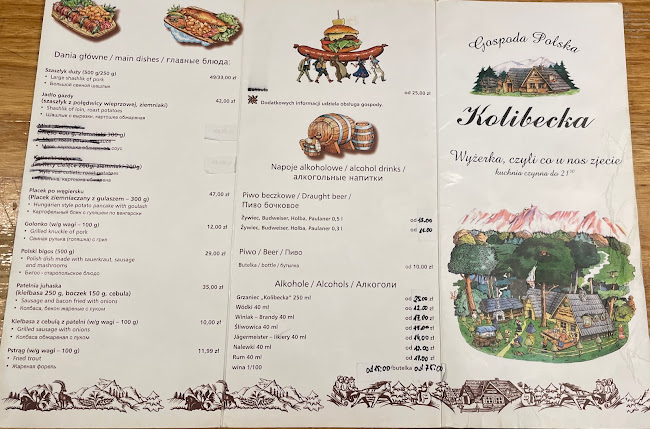 Dania główne / main dishes / главные блюда:
Szaszłyk duży (500 g/250 g) 49,00 zł
• Large shashlik of pork
• Большой свиной шашлык
Jadło gazdy 42,00 zł
(szaszłyk z polędwicy wieprzowej, ziemniaki)
• Shashlik of loin, roast potatoes
• Шашлык с вырезки, картошка обжаренная
Placek po węgiersku 47,00 zł
(Placek ziemniaczany z gulaszem – 300 g)
• Hungarian style potato pancake with goulash
• Картофельный блин с гуляшом по венгерски
Golonko (w/g wagi – 100 g) 12,00 zł
• Grilled knuckle of pork
• Свиная рулька (голяшка) с грил
Polski bigos (500 g) 29,00 zł
• Polish dish made with sauerkraut, sausage
and mashrooms
• Бигос - старопольское блюдо
Patelnia juhaska 35,00 zł
(kiełbasa 250 g, boczek 150 g, cebula)
• Sausage and bacon fried with onions
• Колбаса, бекон жареные с луком
Kiełbasa z cebulą z patelni (w/g wagi – 100 g) 10,00 zł
• Grilled sausage with onions
• Колбаса с луком
Pstrąg (w/g wagi – 100 g) 11,99 zł
• Fried trout
• Жареная форель
od 25,00 zł
Dodatkowych informacji udziela obsługa gospody.
Napoje alkoholowe / alcohol drinks /
алкогольные напитки
Piwo beczkowe / Draught beer /
Пиво бочковое
Żywiec, Budweiser, Holba, Paulaner 0,5 l od
Żywiec, Budweiser, Holba, Paulaner 0,3 l od
Piwo / Beer / Пиво
Butelka / bottle / бутылка od 10,00 zł
Alkohole / Alcohols / Алкоголи
Grzaniec „Kolibecka" 250 ml od 25.00 zł
Wódki 40 ml od 12.00 zł
Winiak – Brandy 40 ml od zł
Śliwowica 40 ml od zł
Jägermeister – likiery 40 ml od zł
Nalewki 40 ml od zł
Rum 40 ml od zł
wina 1/100 od 15:00 /butelka od 75:00
Gospoda Polska
Kolibecka
Wyżerka, czyli co u nos zjecie
kuchnia czynna do 21⁰⁰